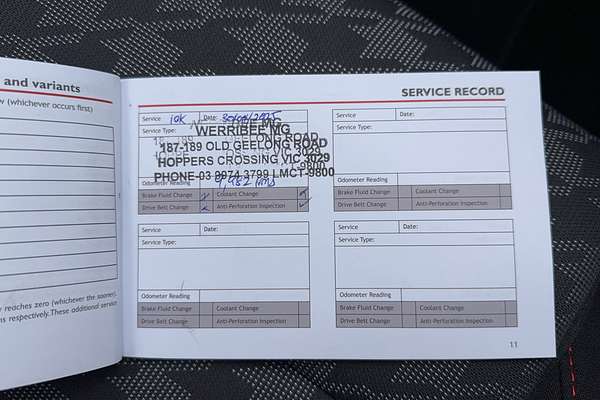 and variants
w (whichever occurs first)
y reaches zero (whichever the sooner).
ns respectively. These additional service
SERVICE RECORD
Service 10K Date:
Service Type:
WERRIBEE MG
187-189 OLD GEELONG ROAD
HOPPERS CROSSING VIC 3029
PHONE-03 8974 3799 LMCT-9800
Odometer Reading
Brake Fluid Change Coolant Change
Drive Belt Change Anti-Perforation Inspection
Service Date:
Service Type:
Odometer Reading
Brake Fluid Change Coolant Change
Drive Belt Change Anti-Perforation Inspection
Service Date:
Service Type:
Odometer Reading
Brake Fluid Change Coolant Change
Drive Belt Change Anti-Perforation Inspection
Service Date:
Service Type:
Odometer Reading
Brake Fluid Change Coolant Change
Drive Belt Change Anti-Perforation Inspection
11